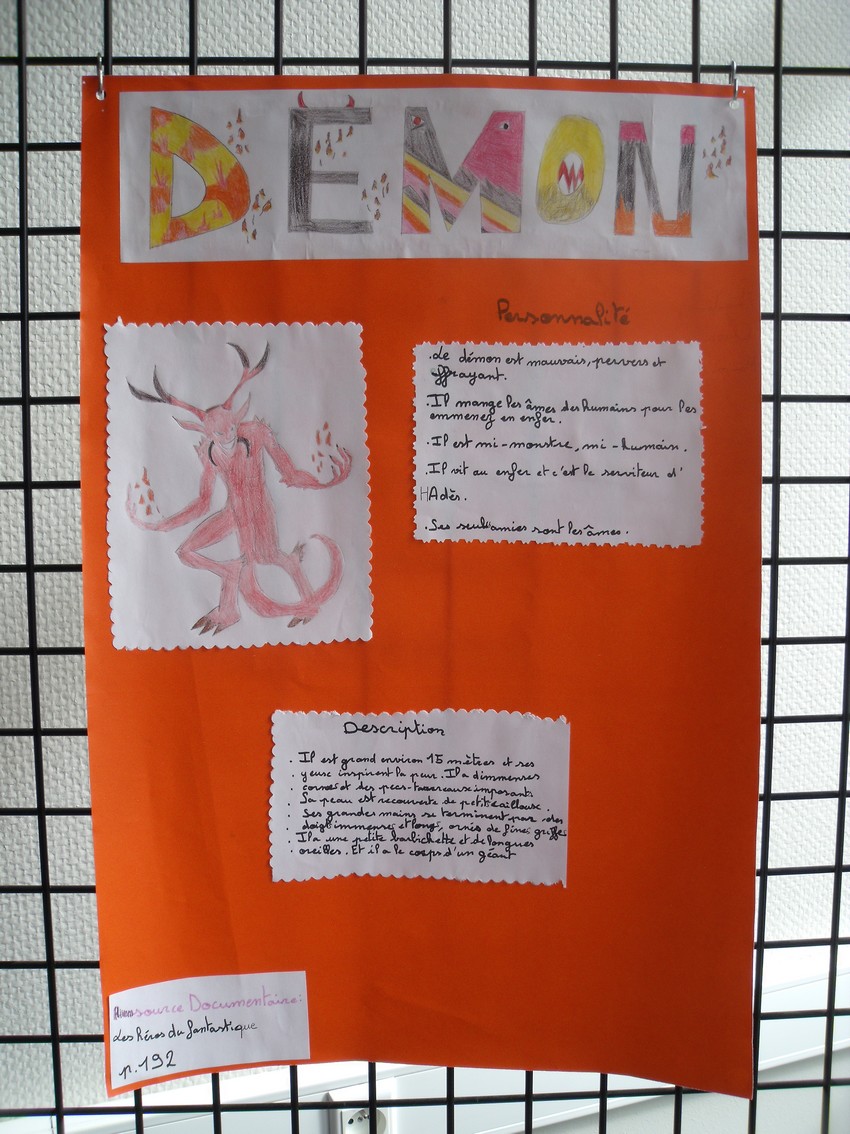 DÉMON
Personnalité
.Le démon est mauvais, pervers et
effrayant.
.Il mange les âmes des humains pour les
emmenez en enfer.
.Il est mi-monstre, mi-humain.
.Il vit au enfer et c'est le serviteur d'
HAdès.
.Ses seul amies sont les âmes.
Description
. Il est grand environ 15 mètres et ses
. yeux inspirent la peur. Il a d'immenses
. cornes et des pecs-taureaux imposants
. Sa peau est recouverte de petit écailleux.
. Ses grandes mains se terminent par des
. doigt immenses et longs, ornés de fines griffes
. Il a une petite barbichette et de longues
. oreilles. Et il a le corps d'un géant
source Documentaire:
Les héros du fantastique
p.192